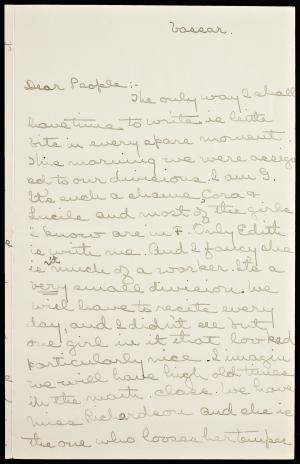 Vassar.
Dear People:-
The only way I shall
have time to write is little
bits in every spare moment.
This morning we were assign
ed to our divisions. I am G.
It's such a shame, Cora &
Lucile and most of the girls
I know are in F. Only Edith
is with me. And I fancy she
is'nt much of a worker. It's a
very small division. We
will have to recite every
day, and I didn't see but
one girl in it that looked
particularly nice. I imagin
we will have high old times
in the math. class. We have
Miss Richardson and she is
the one who looses her temper